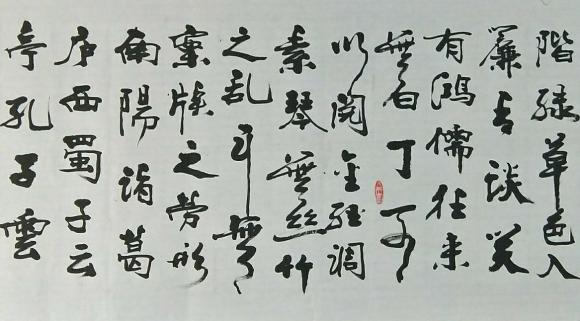 階綠草色入
簾青談笑
有鴻儒往来
無白丁可
以閲金經調
素琴無丝竹
之乱耳無
案牘之勞形
南陽諸葛
庐西蜀子云
亭孔子雲